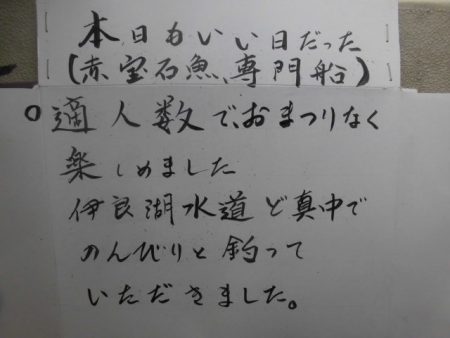 本日もいい日だった
(赤宝石魚、専門船)
○適人数で、おまつりなく
楽しめました
伊良湖水道ど真中で
のんびりと釣って
いただきました。